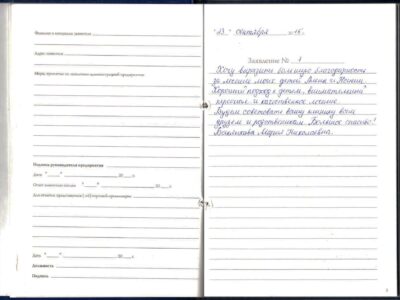 Фамилия и инициалы заявителя
Адрес заявителя
Меры, принятые по заявлению администрацией предприятия
Подпись руководителя предприятия
Дата " " 20 г.
Ответ заявителю послан " " 20 г.
Дата " " 20 г.
Должность
Подпись
"23" сентября 2015г.
Заявление № 1
Хочу выразить большую благодарность
за лечение моих детей
Хороший подход к детям, внимательный
персонал и качественное лечение.
Будем советовать вашу клинику всем
друзьям и родственникам. Большое спасибо!
Мария Николаевна.